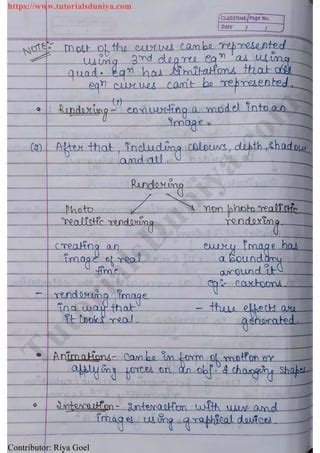 https://www.tutorialsduniya.com
CLASSTIME Page No.
Date / /
NOTE:- Most of the curves can be represented
using 3rd degree eqn as using
quad. eqn has limitations that all
eqn curves can't be represented.
• Rendering - (1) converting a model into an
image.
(2) After that, including colours, depth, shadow
and all.
Rendering
Photo realistic rendering
non photo realistic rendering
creating an image of real time
every image has a boundary around it
eg:- cartoons.
- rendering image in a way that it looks real.
- these effects are generated.
• Animations - can be in form of motion or
applying forces on an obj. & changing shapes
• Interaction - Interaction with user and
images using graphical devices.
TutorialsDuniya.com
Contributor: Riya Goel